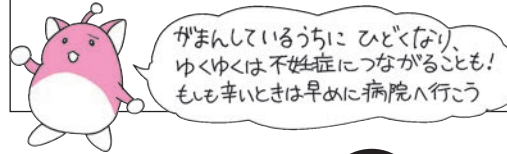 がまんしているうちに ひどくなり、
ゆくゆくは不妊症につながることも!
もしも辛いときは早めに病院へ行こう